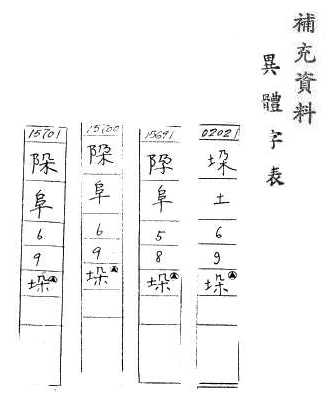 補充資料
異體字表
02021
垛
土
6
9
垛
15691
阜
5
8
垛
15700
阜
6
9
垛
15701
阜
6
9
垛